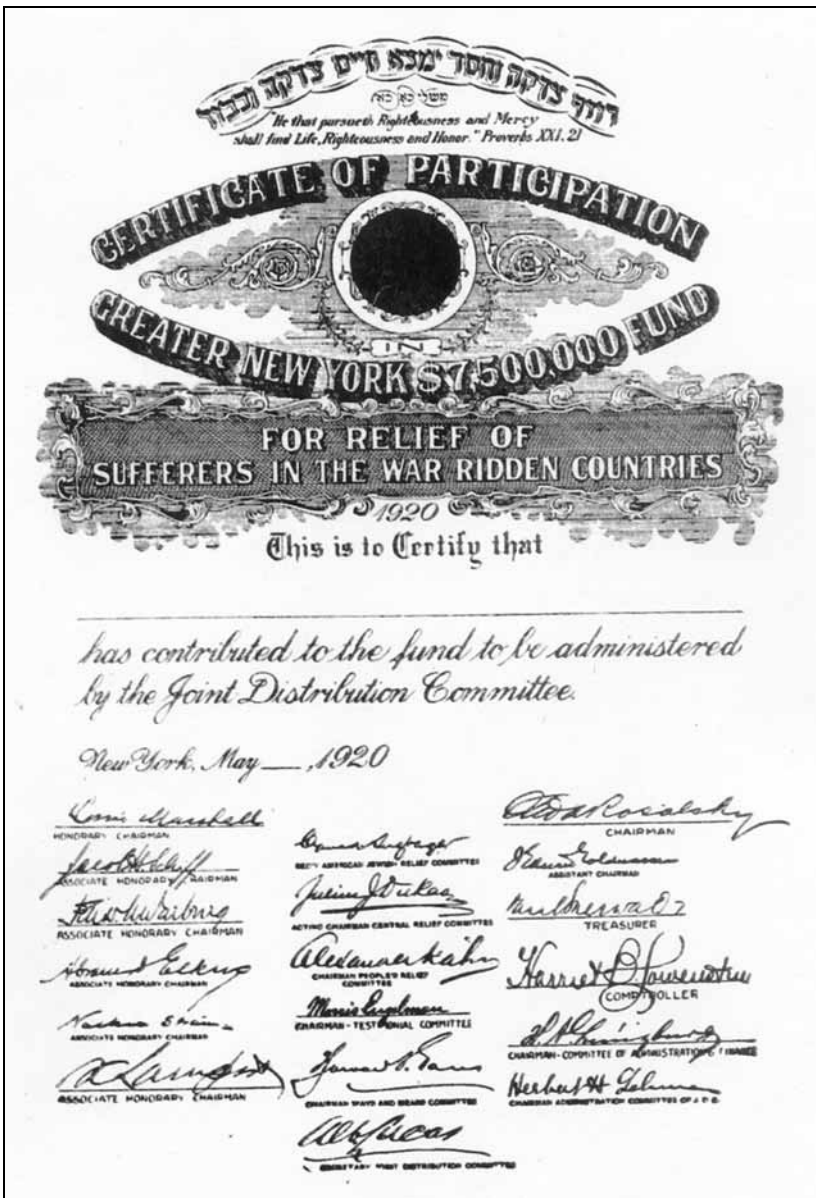 רודף צדקה וחסד ימצא חיים צדקה וכבוד
משלי כא כא
"He that pursueth Righteousness and Mercy
shall find Life, Righteousness and Honor." Proverbs XXI. 21
CERTIFICATE OF PARTICIPATION
IN
GREATER NEW YORK $7,500,000 FUND
FOR RELIEF OF
SUFFERERS IN THE WAR RIDDEN COUNTRIES
1920
This is to Certify that
has contributed to the fund to be administered
by the Joint Distribution Committee.
New York, May , 1920
Louis Marshall
HONORARY CHAIRMAN
Jacob H. Schiff
ASSOCIATE HONORARY CHAIRMAN
Felix M. Warburg
ASSOCIATE HONORARY CHAIRMAN
ASSOCIATE HONORARY CHAIRMAN
ASSOCIATE HONORARY CHAIRMAN
ASSOCIATE HONORARY CHAIRMAN
AMERICAN JEWISH RELIEF COMMITTEE
Julius J. Dukas
ACTING CHAIRMAN CENTRAL RELIEF COMMITTEE
Alexander Kahn
CHAIRMAN PEOPLE'S RELIEF
COMMITTEE
Morris Engelman
CHAIRMAN-TESTIMONIAL COMMITTEE
CHAIRMAN WAYS AND MEANS COMMITTEE
Alb Lucas
SECRETARY JOINT DISTRIBUTION COMMITTEE
Otto A Rosalsky
CHAIRMAN
ASSISTANT CHAIRMAN
TREASURER
Harriet B. Lowenstein
COMPTROLLER
CHAIRMAN-COMMITTEE OF ADMINISTRATION & FINANCE
Herbert H Lehman
CHAIRMAN ADMINISTRATION COMMITTEE OF J. D. C.